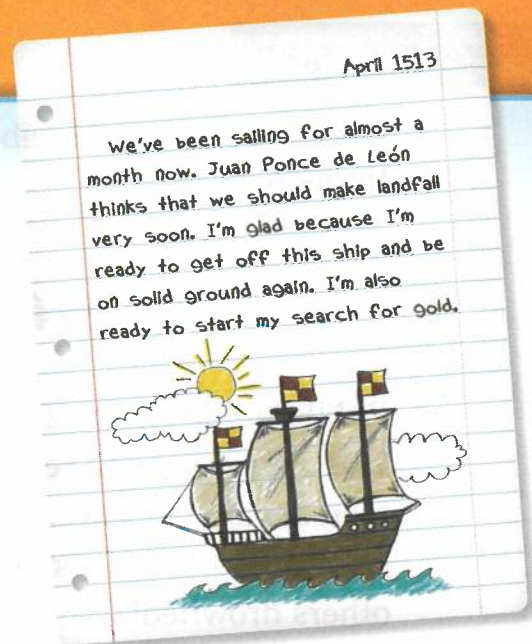 April 1513
We've been sailing for almost a
month now. Juan Ponce de León
thinks that we should make landfall
very soon. I'm glad because I'm
ready to get off this ship and be
on solid ground again. I'm also
ready to start my search for gold.
others drowned!